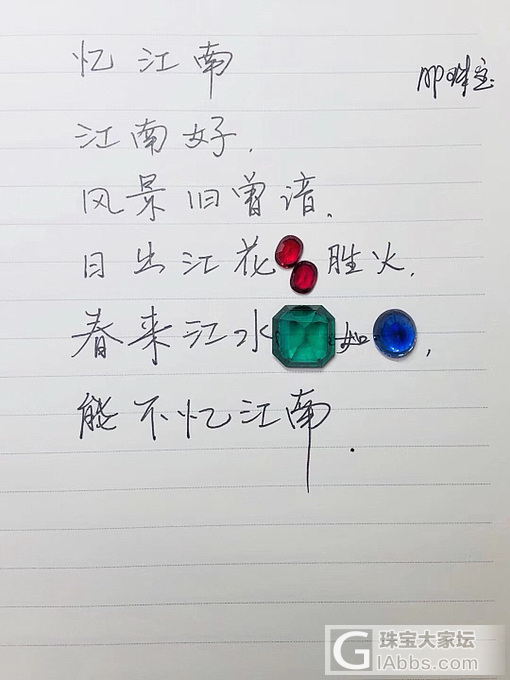 忆江南
江南好.
风景旧曾谙.
日出江花 胜火.
春来江水 如 ,
能不忆江南.
珠宝大家坛
GIAbbs.com